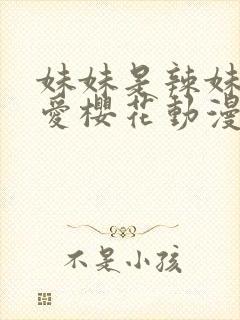 妹妹是辣妹
愛櫻花動漫
不是小孩